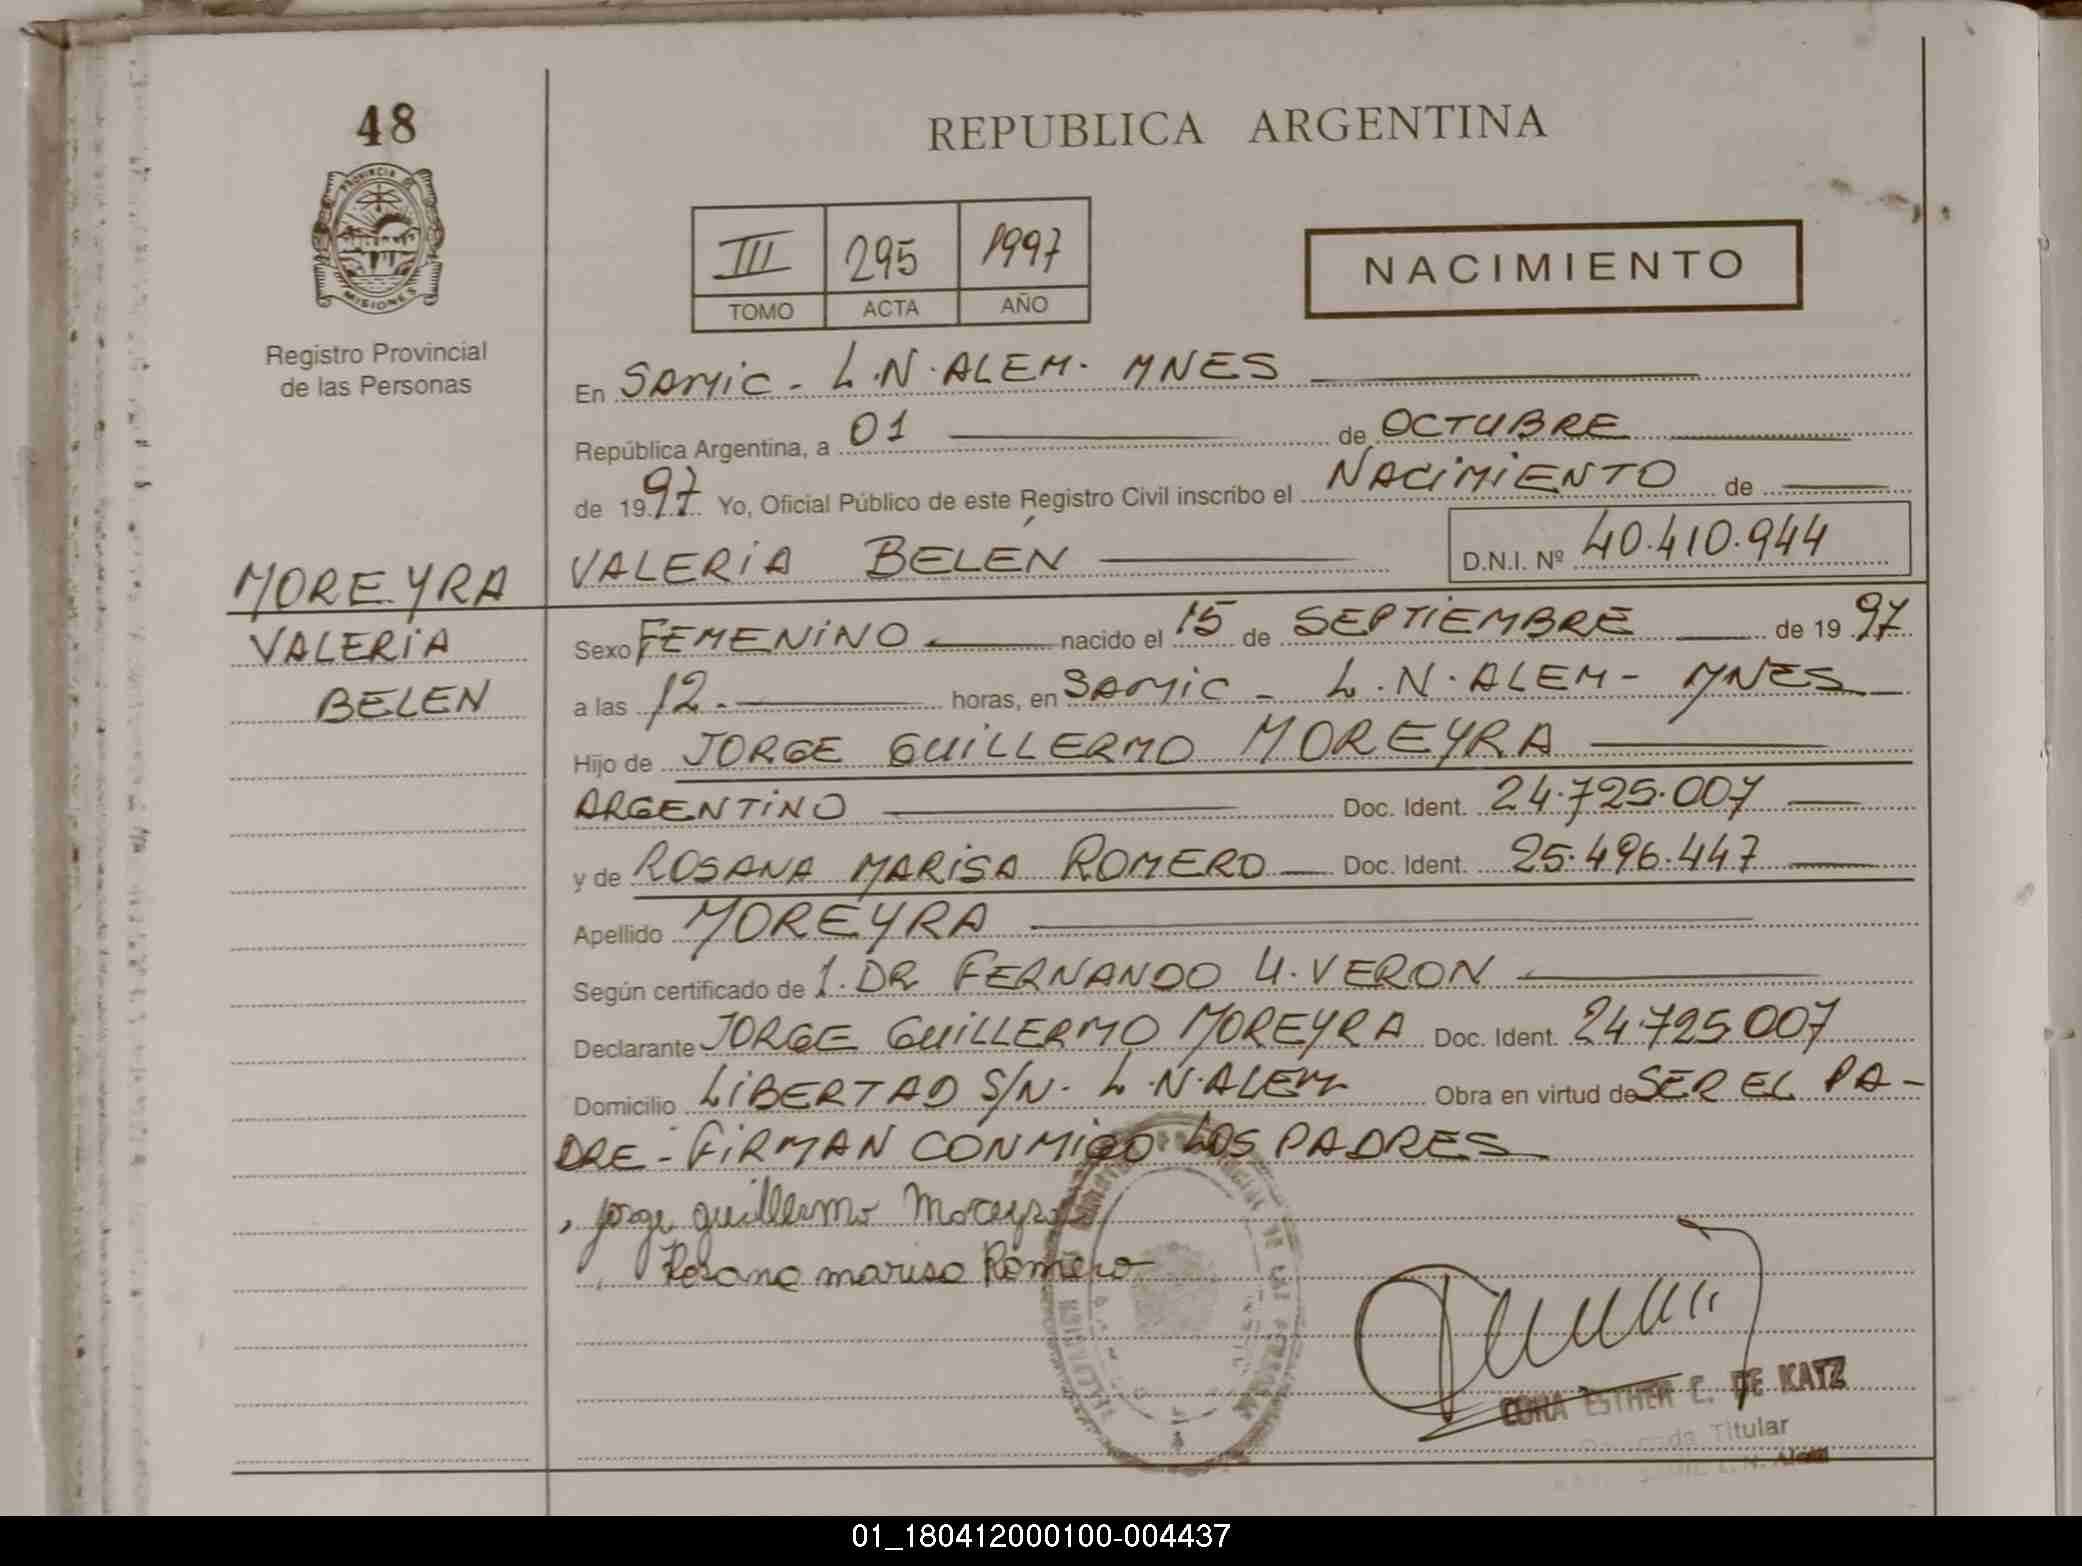 48
PROVINCIA DE
MISIONES
Registro Provincial
de las Personas
REPUBLICA ARGENTINA
III 295 1997
TOMO ACTA AÑO
NACIMIENTO
En SAMIC - L.N. ALEM - MNES
República Argentina, a 01 de OCTUBRE
de 1997 Yo, Oficial Público de este Registro Civil inscribo el NACIMIENTO de
VALERIA BELÉN D.N.I. Nº 40.410.944
MOREYRA
VALERIA
BELEN
Sexo FEMENINO nacido el 15 de SEPTIEMBRE de 1997
a las 12. horas, en SAMIC - L.N. ALEM - MNES
Hijo de JORGE GUILLERMO MOREYRA
ARGENTINO Doc. Ident. 24.725.007
y de ROSANA MARISA ROMERO Doc. Ident. 25.496.447
Apellido MOREYRA
Según certificado de 1. DR FERNANDO U. VERON
Declarante JORGE GUILLERMO MOREYRA Doc. Ident. 24.725.007
Domicilio LIBERTAD S/N. L.N. ALEM Obra en virtud de SER EL PA-
DRE - FIRMAN CONMIGO LOS PADRES
Jorge guillermo Moreyra
Rosana marisa Romero
CORA ESTHER C. DE KATZ
Titular
L. N. Alem
01_180412000100-004437